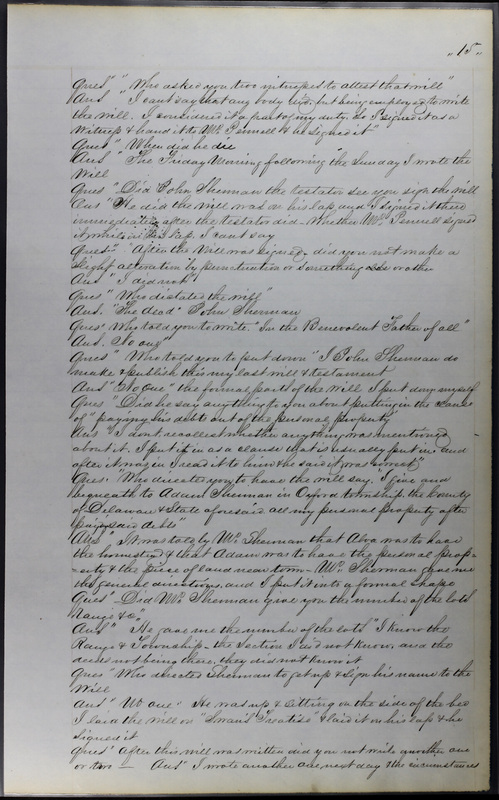 "15"
Ques" "Who asked you two witnesses to attest that will"
Ans" "I cant say that any body did, but being employed to write
the will. I considered it a part of my duty. So I signed it as a
Witness & hand it to Mr. Pennell & he signed it"
Ques" When did he die
Ans" "The Friday Morning following the Sunday I wrote the
Will
Ques" Did John Sherman the testator see you sign the will
Ans" He did the Will was on his lap and I signed it there
immediately after the testator did - Whether Mr. Pennell signed
it while in his lap. I cant say
Ques" "After the Will was signed, did you not make a
slight alteration by punctuation or something else or other
Ans" I did not"
Ques" "Who dictated the will"
Ans. "The dead" John Sherman
Ques" Who told you to write. "In the Benevolent Father of all"
Ans. No one"
Ques" "Who told you to put down" "I John Sherman do
make & publish this my last will & testament
Ans" "No One" the formal parts of the Will I put down myself
Ques" "Did he say anything to you about putting in the clause
of" paying his debts out of the personal property
Ans" "I dont recollect whether anything was mentioned
about it. I put it in as a clause that is usually put in and
after it was in I read it to him & he said it was correct"
Ques. "Who directed you to have the will say. "I give and
bequeath to Adam Sherman in Oxford township the County
of Delaware & State aforesaid all my personal property after
paying said debts"
Ans" It was told by Mr. Sherman that Alva was to have
the homestead & that Adam was to have the personal prop-
-erty & the piece of land near town - Mr. Sherman gave me
the general directions. and I put it into a formal shape
Ques" Did Mr. Sherman give you the number of the lots
Range &c,"
Ans" He gave me the number of the lots "I knew the
Range & Township - the Section I did not know, and the
deeds not being there, they did not know it
Ques" Who directed Sherman to get up & sign his name to the
Will
Ans" No one. He was up & sitting on the side of the bed
I laid the will on "Swan's Treatise" & laid it on his lap & he
signed it
Ques" After this will was written did you not write another one
or two — Ans" I wrote another one next day & the circumstances